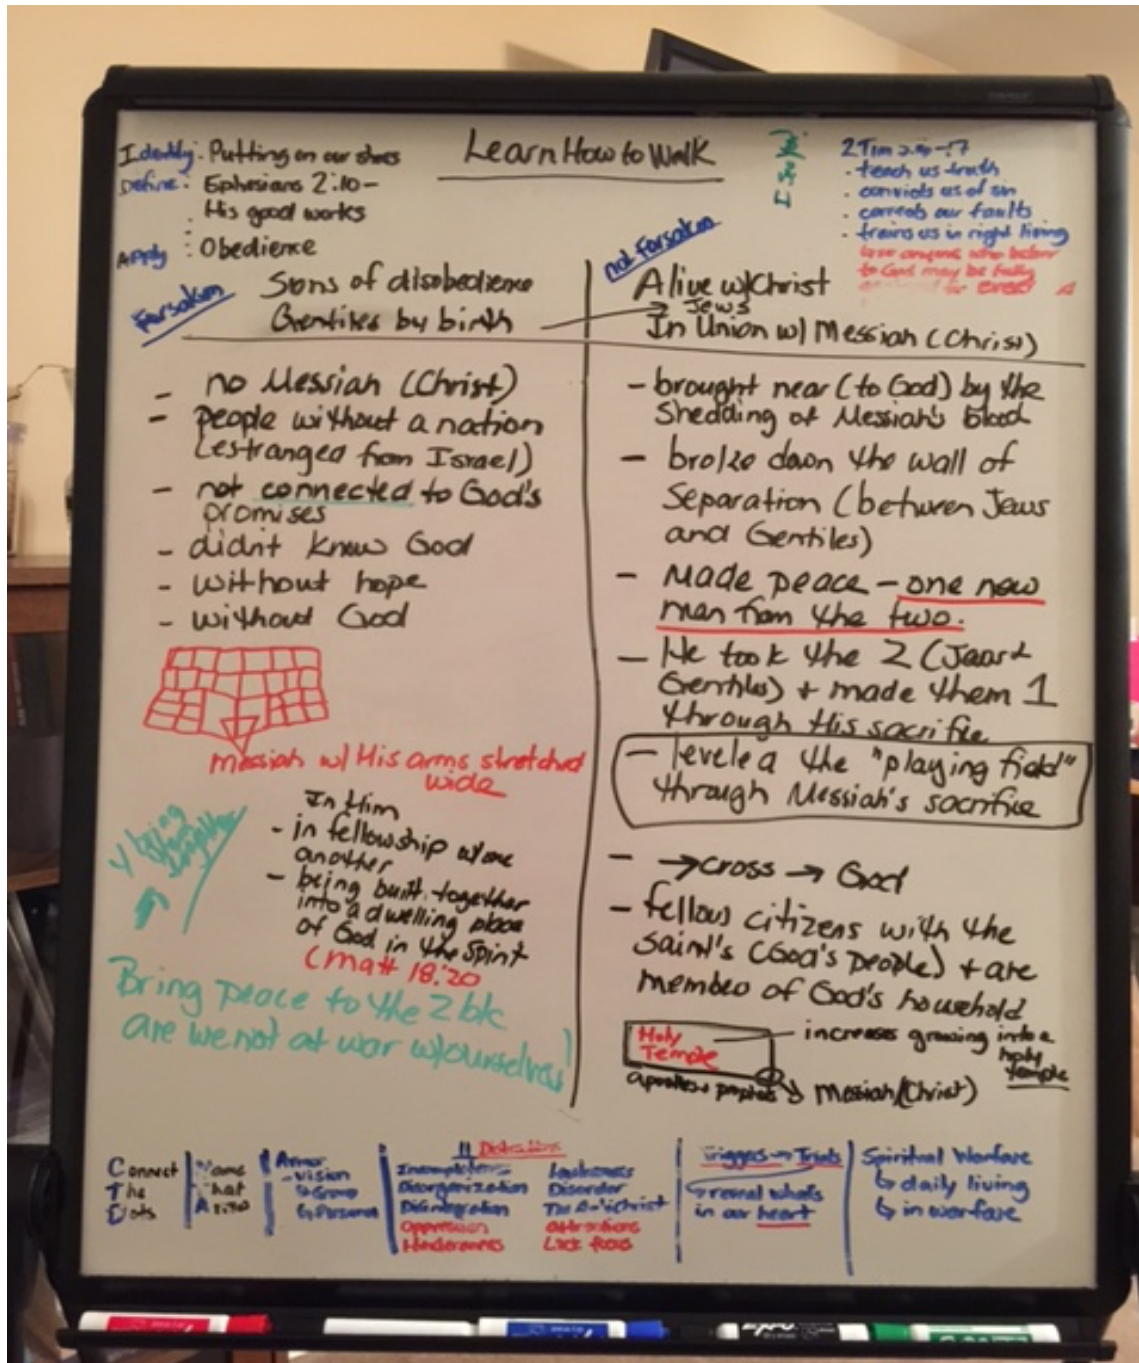 Learn How to Walk
Identify: Putting on our shoes
Define: Ephesians 2:10-
His good works
Apply : Obedience
2 Tim
. teach us truth
. convicts us of sin
. corrects our faults
. trains us in right living
to God may be fully
Forsaken
Sons of disobedience
Gentiles by birth
- no Messiah (Christ)
- people without a nation
(estranged from Israel)
- not connected to God's
promises
- didn't know God
- without hope
- without God
Messiah w/ His arms stretched
wide
In Him
- in fellowship w/one
another
- being built together
into a dwelling place
of God in the Spirit
(Matt 18:20
being
Bring peace to the 2 b/c
are we not at war w/ourselves!
not Forsaken
Alive w/Christ
Jews
In Union w/ Messiah (Christ)
- brought near (to God) by the
Shedding of Messiah's blood
- broke down the wall of
Separation (between Jews
and Gentiles)
- Made peace - one new
man from the two.
- He took the 2 (Jews +
Gentiles) + made them 1
through His sacrifice
- leveled the "playing field"
through Messiah's sacrifice
- → cross → God
- fellow citizens with the
saint's (God's people) + are
member of God's household
Holy
Temple
increases growing into a
holy
temple
apostles + prophets
Messiah/(Christ)
Connect
The
Dots
Name
What
Armor
- vision
Group
Persona
Disorganization
Disintegration
Oppression
Lawlessness
Disorder
The AntiChrist
Attractions
Lack focus
Triggers → Trials
reveal what's
in our heart
Spiritual Warfare
↳ daily living
↳ in warfare
EXPO